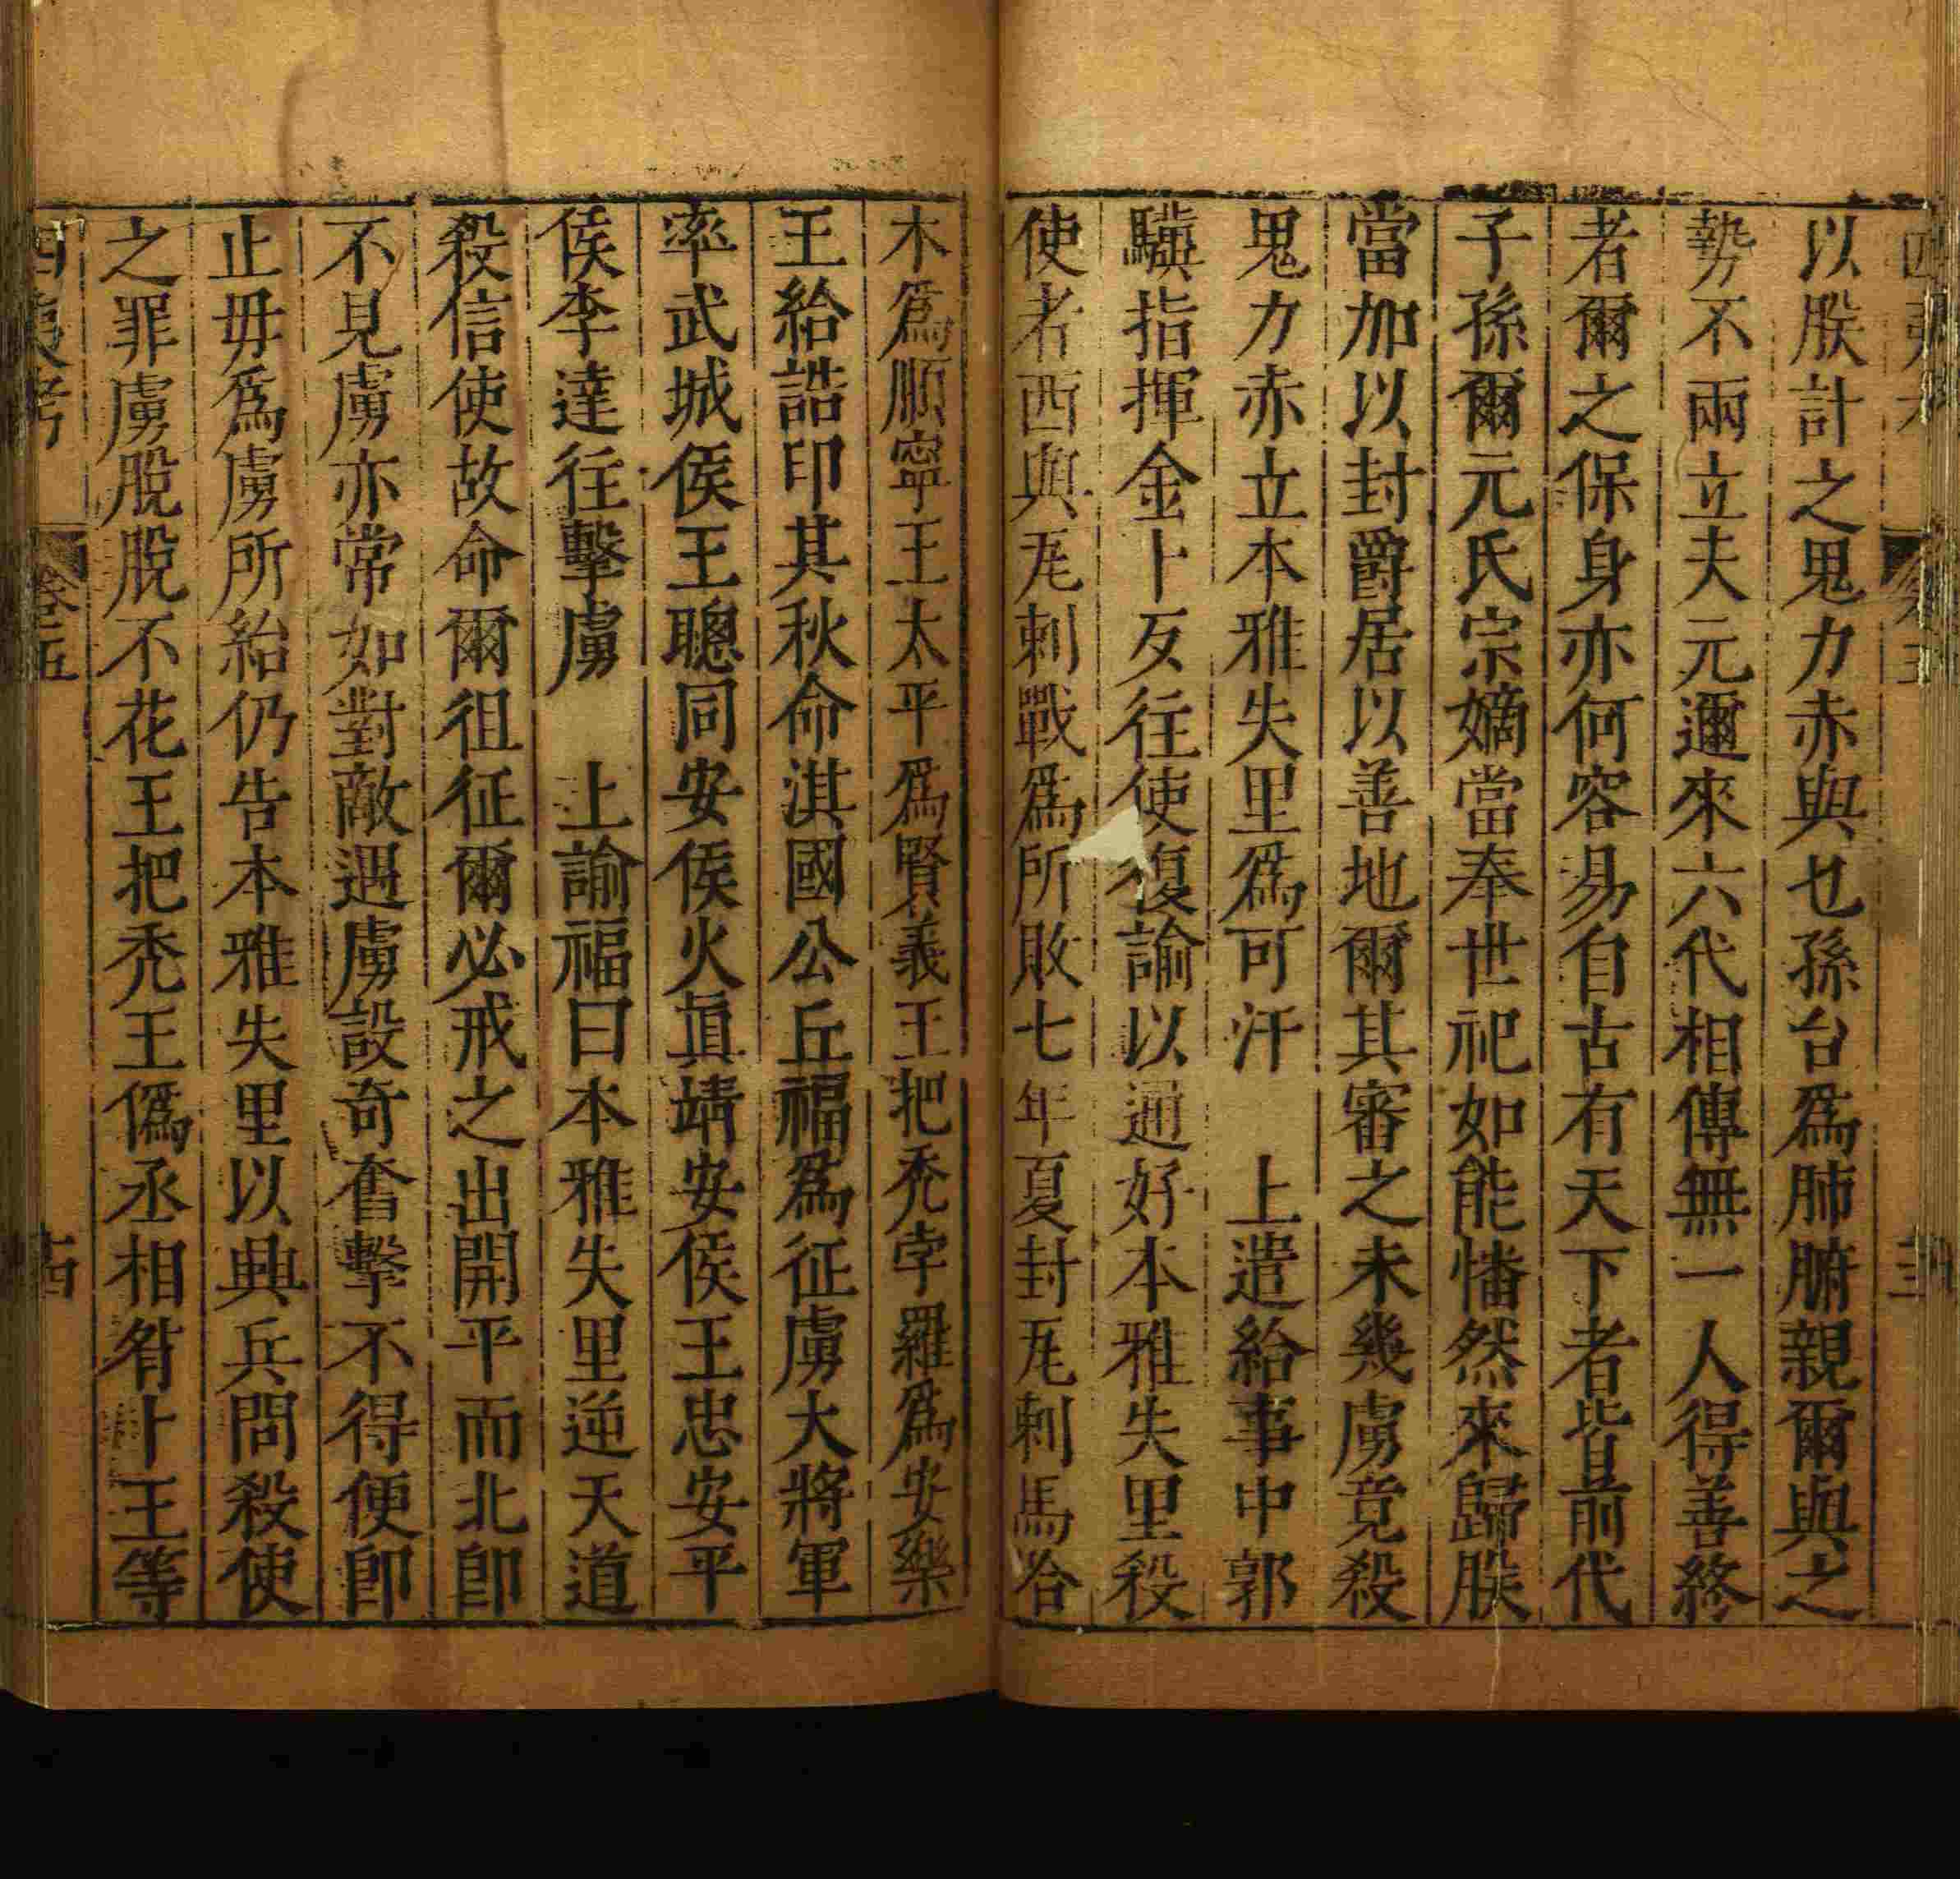 以朕計之鬼力赤與也孫台爲肺腑親爾與之
勢不兩立夫元邇來六代相傳無一人得善終
者爾之保身亦何容易自古有天下者皆前代
子孫爾元氏宗嫡當奉世祀如能幡然來歸朕
當加以封爵居以善地爾其審之未幾虜竟殺
鬼力赤立本雅失里爲可汗　上遣給事中郭
驥指揮金卜歹往使復諭以通好本雅失里殺
使者西與瓦剌戰爲所敗七年夏封瓦剌馬哈
木爲順寧王太平爲賢義王把禿孛羅爲安樂
王給誥印其秋命淇國公丘福爲征虜大將軍
率武城侯王聰同安侯火眞靖安侯王忠安平
侯李達往擊虜　上諭福曰本雅失里逆天道
殺信使故命爾徂征爾必戒之出開平而北卽
不見虜亦常如對敵遇虜設奇奮擊不得便卽
止毋爲虜所紿仍告本雅失里以興兵問殺使
之罪虜脫脫不花王把禿王僞丞相昝卜王等
四夷考　卷五　十四